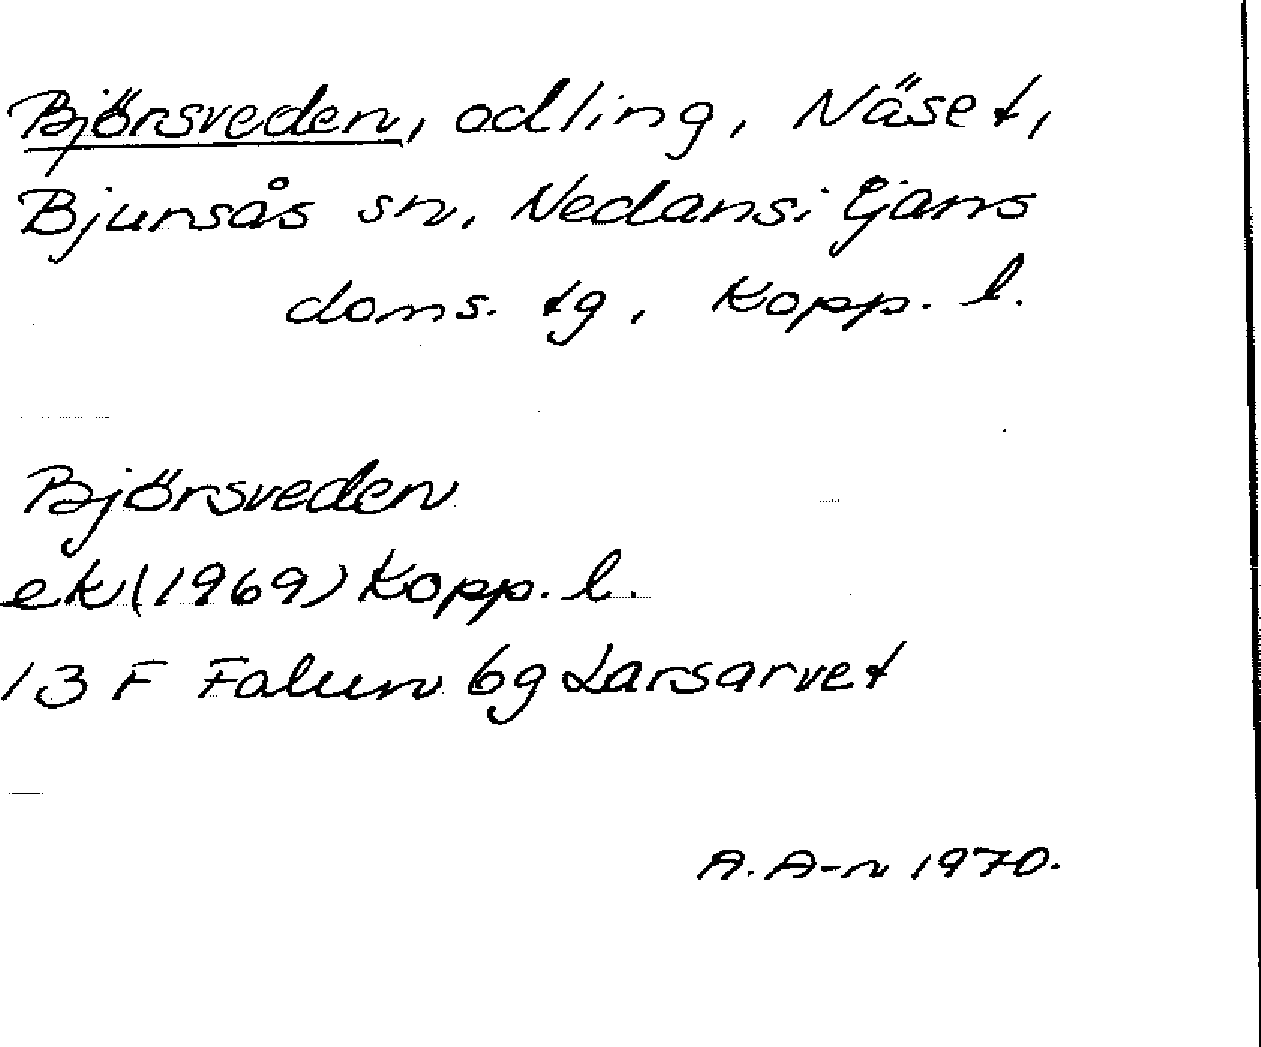 Björsveden, odling, Näset,
Bjursås sn, Nedansiljans
doms. tg, Kopp. l.
Björsveden
ek (1969) Kopp. l.
13 F Falun 6g Larsarvet
A. A-n 1970.